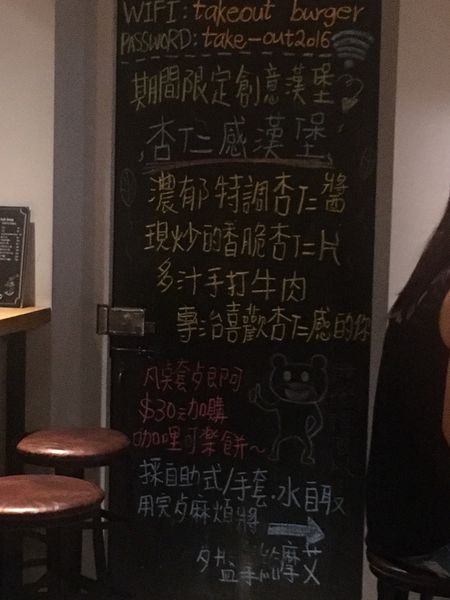 WIFI: takeout burger
PASSWORD: take-out2016
期間限定創意漢堡
杏仁感漢堡
濃郁特調杏仁醬
現炒的香脆杏仁片
多汁手打牛肉
專治喜歡杏仁感的你
凡突套歺即可
$30元加購
咖哩可樂餅~
採自助式/手套.水自取
用完歺麻煩將